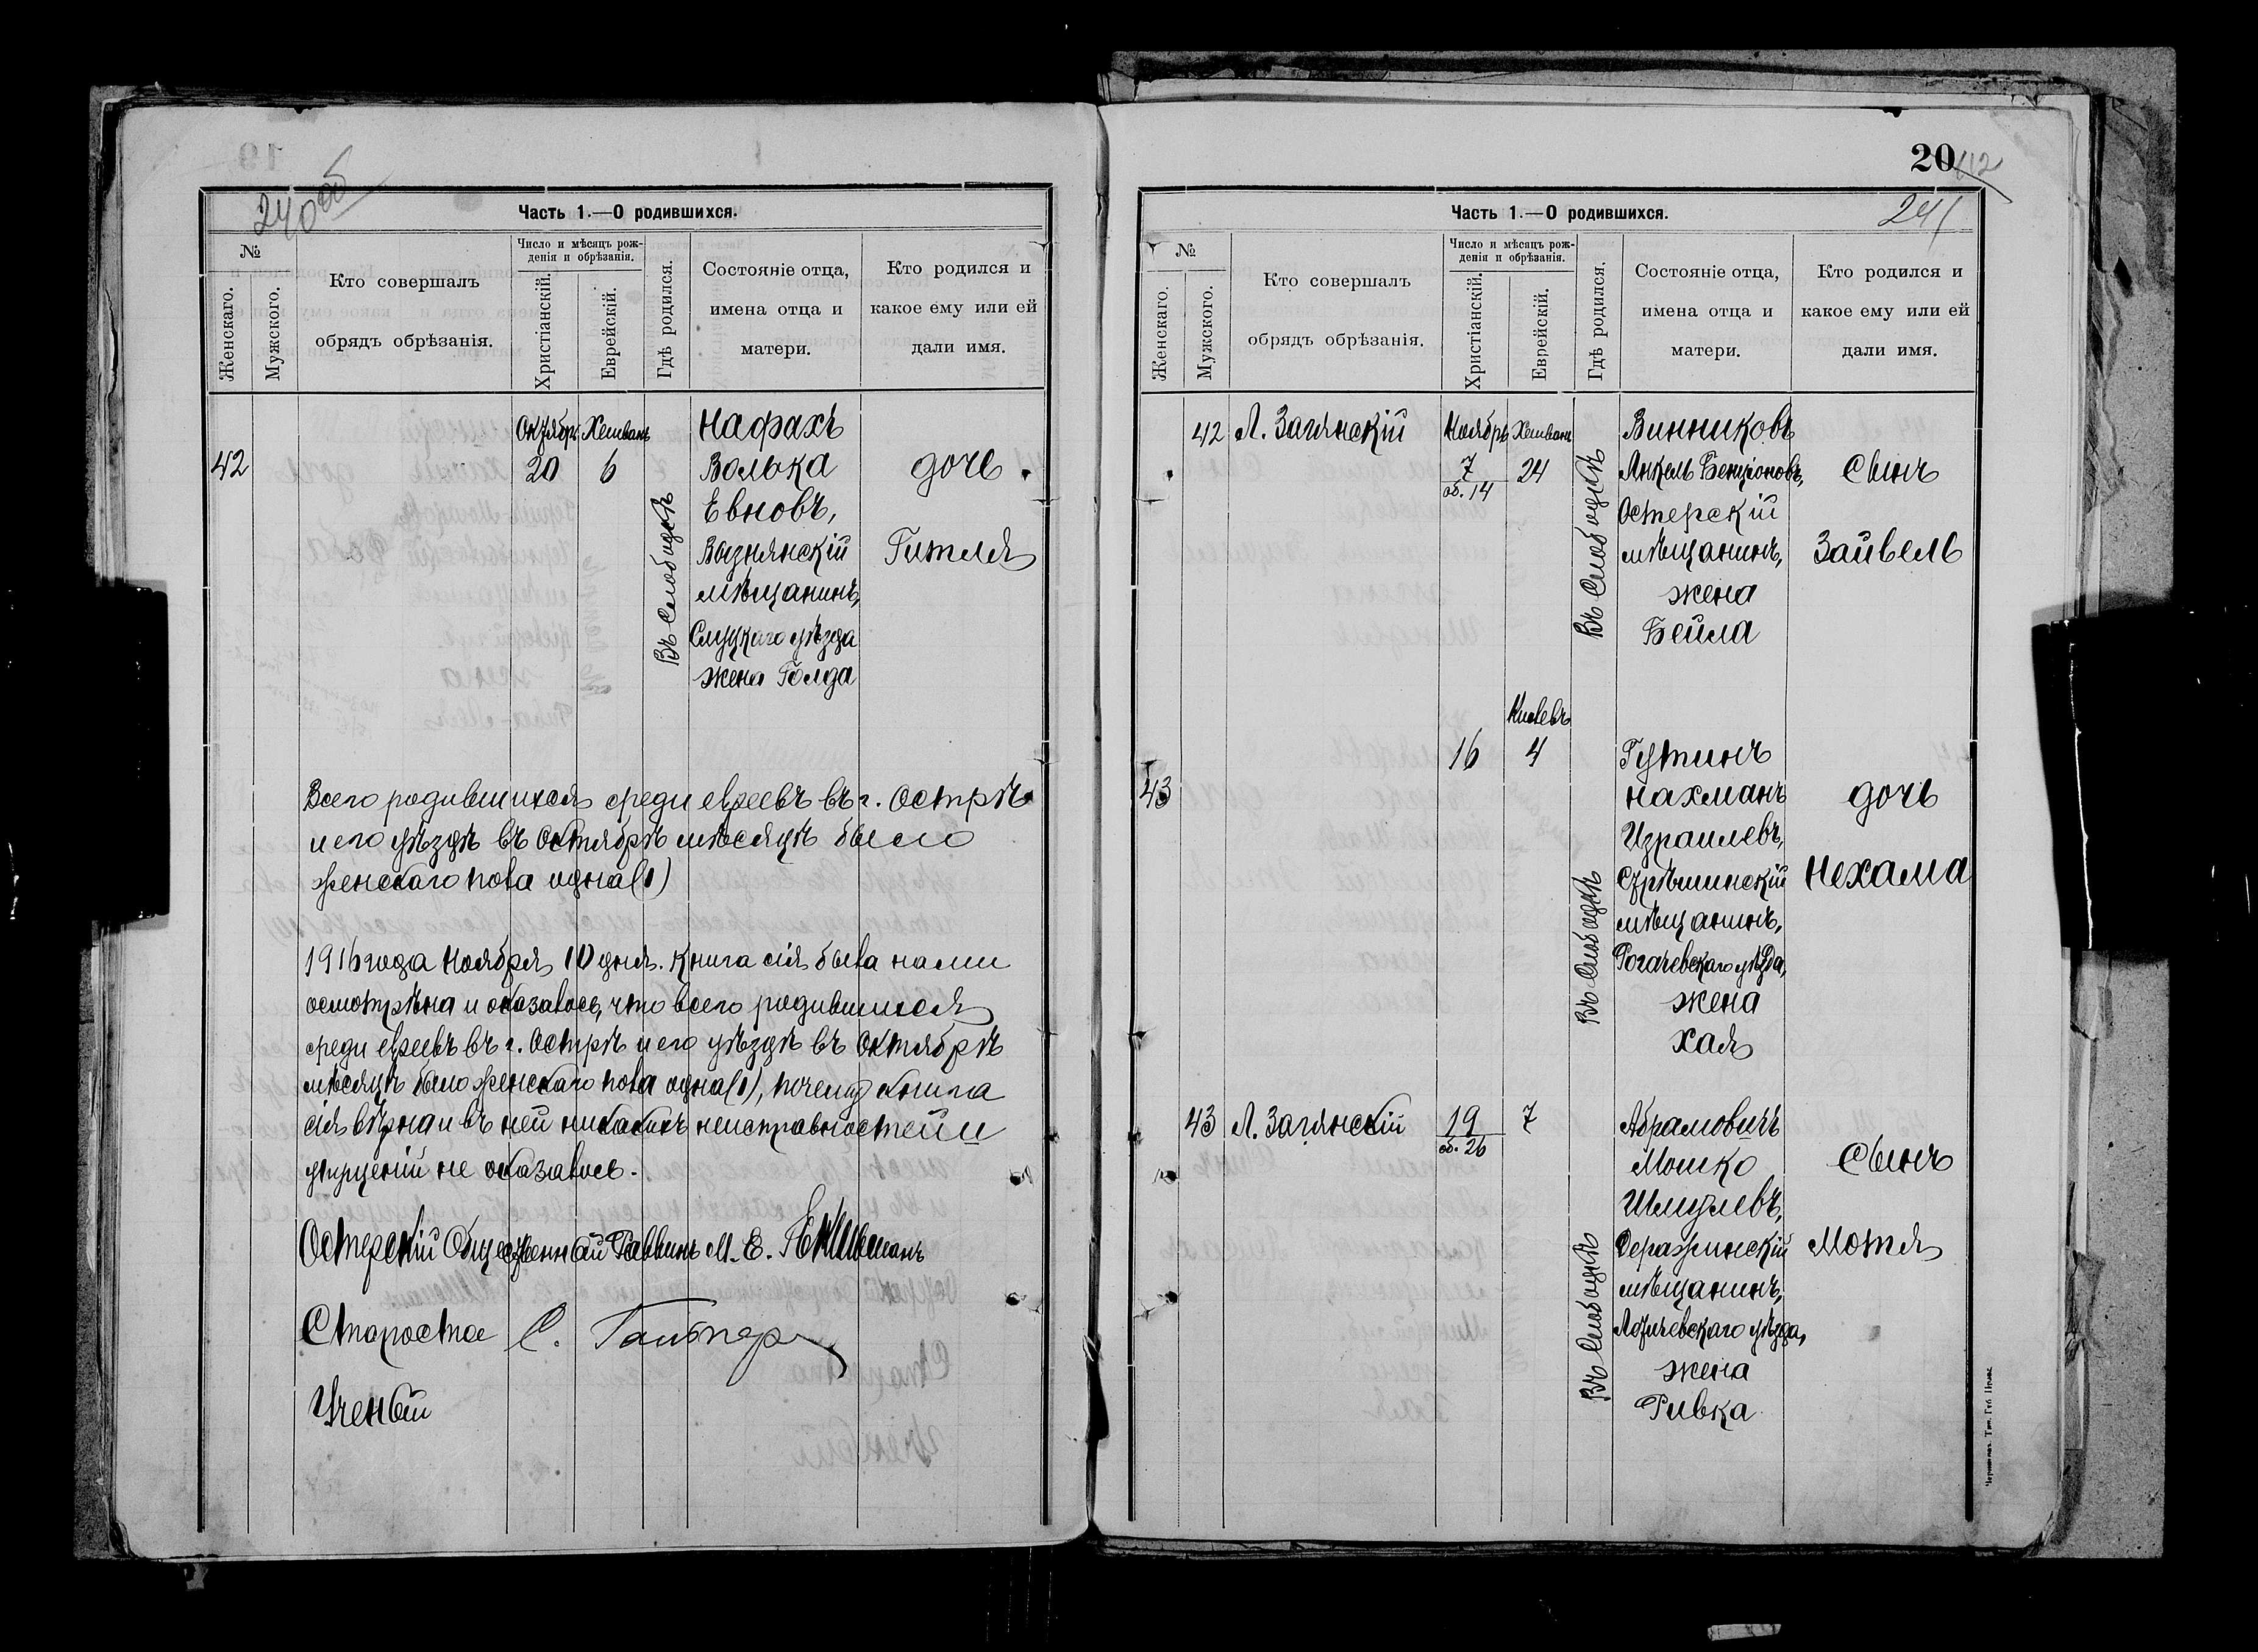 240 об
Часть 1.—О родившихся.
№
Женскаго.
Мужского.
Кто совершалъ
обрядъ обрѣзанія.
Число и мѣсяцъ рож-
денія и обрѣзанія.
Христіанскій.
Еврейскій.
Гдѣ родился.
Состояніе отца,
имена отца и
матери.
Кто родился и
какое ему или ей
дали имя.
42
Октябрь
20
Хешванъ
6
Въ Слободкѣ
Нафахъ
Волька
Евновъ,
мѣщанинъ,
Слуцкаго уѣзда
жена Голда
дочь
Гитля
Всего родившихся среди евреевъ въ г. Острѣ
и его уѣздѣ въ Октябрѣ мѣсяцѣ было
женскаго пола одна (1)
1916 года Ноября 10 дня. Книга сія была нами
осмотрѣна и оказалось, что всего родившихся
среди евреевъ въ г. Острѣ и его уѣздѣ въ Октябрѣ
мѣсяцѣ было женскаго пола одна (1), почему книга
сія вѣрна и въ ней никакихъ неисправностей и
упущеній не оказалось.
Остерскій Общественный Раввинъ М. Е.
Староста С.
Ученый
20
241
Часть 1.—О родившихся.
№
Женскаго.
Мужского.
Кто совершалъ
обрядъ обрѣзанія.
Число и мѣсяцъ рож-
денія и обрѣзанія.
Христіанскій.
Еврейскій.
Гдѣ родился.
Состояніе отца,
имена отца и
матери.
Кто родился и
какое ему или ей
дали имя.
42
Л. Загянскій
Ноябрь
7
об. 14
Хешванъ
24
Въ Слободкѣ
Винниковъ
Янкель Бенціоновъ,
Остерскій
мѣщанинъ,
жена
Бейла
сынъ
Зайвель
43
16
Кислевъ
4
Въ Слободкѣ
Гутинъ
Нахманъ
Израилевъ,
Стрѣшинскій
мѣщанинъ,
Рогачевскаго уѣзда,
жена
Хая
дочь
Нехама
43
Л. Загянскій
19
об. 26
7
Въ Слободкѣ
Абрамовичъ
Мошко
Шмулевъ,
Деражинскій
мѣщанинъ,
Летичевскаго уѣзда,
жена
Ривка
сынъ
Мотя